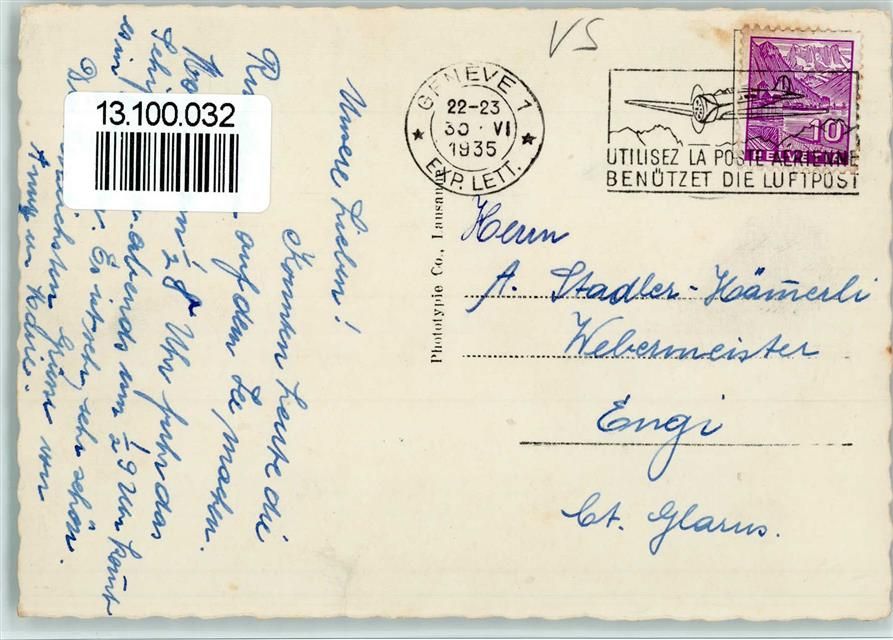 VS
GENEVE 1
22-23
30·VI
1935
EXP. LETT.
UTILISEZ LA POSTE AERIENNE
BENÜTZET DIE LUFTPOST
HELVETIA
10
13.100.032
Phototypie Co., Lausan
Herrn
A. Stadler-Hämerli
Webermeister
Engi
Ct. Glarus.
Unsere Lieben!
Konnten heute die
auf dem See machen.
½8 Uhr fuhr das
abends um ½9 Uhr kommt
Es ist sehr, sehr schön.
Grüsse von